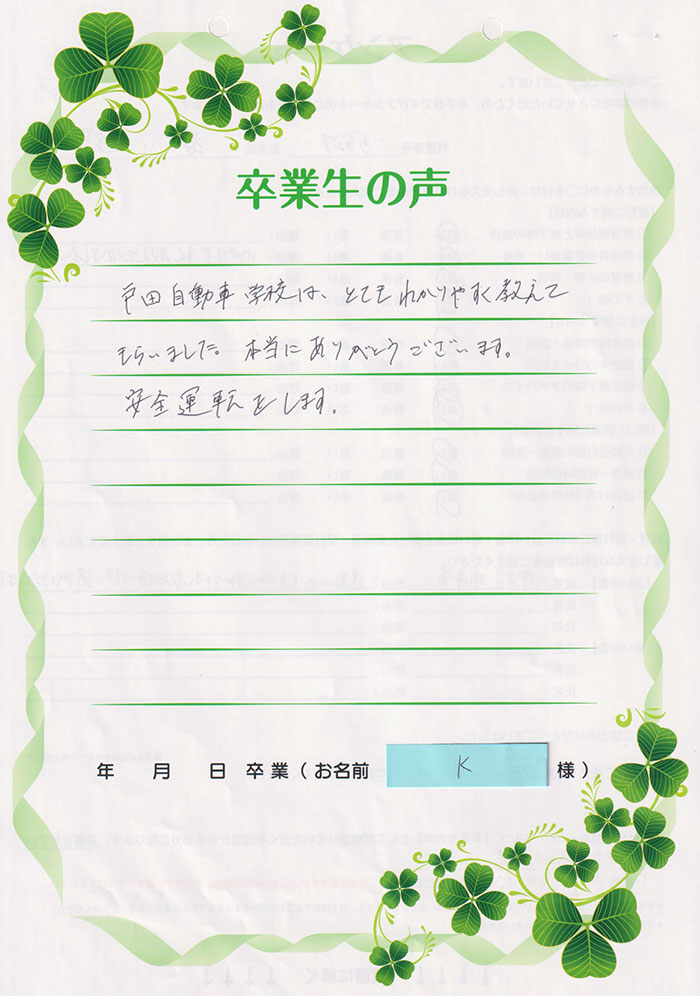 卒業生の声
戸田自動車学校は、とてもわかりやすく教えて
もらいました。本当にありがとうございます。
安全運転をします。
年 月 日 卒業（お名前 K 様）